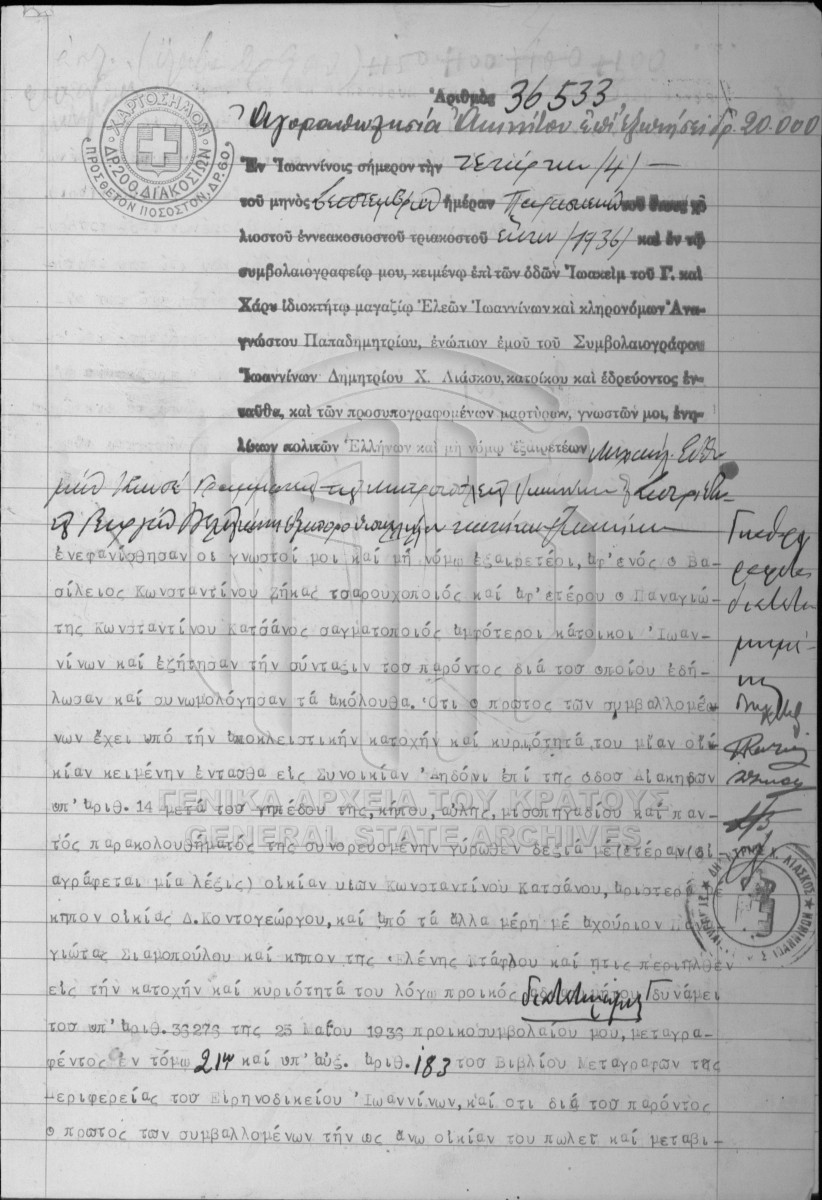 ΧΑΡΤΟΣΗΜΟΝ
ΔΡ. 200. ΔΙΑΚΟΣΙΩΝ
ΠΡΟΣΘΕΤΟΝ ΠΟΣΟΣΤΟΝ, ΔΡ. 60.
Ἀριθμὸς 36533
Ἀγοραπωλησία Ἀκινήτου ἐπὶ ἐξωνήσει Δρ. 20.000
Ἐν Ἰωαννίνοις σήμερον τὴν τετάρτην /4/ —
τοῦ μηνὸς Σεπτεμβρίου ἡμέραν Παρασκευὴν τοῦ ἔτους χι-
λιοστοῦ ἐννεακοσιοστοῦ τριακοστοῦ ἕκτου /1936/ καὶ ἐν τῷ
συμβολαιογραφείῳ μου, κειμένῳ ἐπὶ τῶν ὁδῶν Ἰωακεὶμ τοῦ Γ. καὶ
Χάρυ ἰδιοκτήτῳ μαγαζίῳ Ἐλεῶν Ἰωαννίνων καὶ κληρονόμων Ἀνα-
γνώστου Παπαδημητρίου, ἐνώπιον ἐμοῦ τοῦ Συμβολαιογράφου
Ἰωαννίνων Δημητρίου Χ. Λιάσκου, κατοίκου καὶ ἑδρεύοντος ἐν-
ταῦθα, καὶ τῶν προσυπογραφομένων μαρτύρων, γνωστῶν μοι, ἐνη-
λίκων πολιτῶν Ἑλλήνων καὶ μὴ νόμῳ ἐξαιρετέων Μιχαὴλ Εὐθυ
ἐνεφανίσθησαν οἱ γνωστοί μοι καί μή νόμῳ ἐξαιρετέοι, ἀφ'ἑνός ὁ Βα-
σίλειος Κωνσταντίνου Ζήκας τσαρουχοποιός καί ἀφ'ἑτέρου ὁ Παναγιώ-
της Κωνσταντίνου Κατσάνος σαγματοποιός ἀμφότεροι κάτοικοι Ἰωαν-
νίνων καί ἐζήτησαν τήν σύνταξιν τοῦ παρόντος διά τοῦ ὁποίου ἐδή-
λωσαν καί συνωμολόγησαν τά ἀκόλουθα. Ὅτι ὁ πρῶτος τῶν συμβαλλομέ-
νων ἔχει ὑπό τήν ἀποκλειστικήν κατοχήν καί κυριότητά του μίαν οἰ-
κίαν κειμένην ἐνταῦθα εἰς Συνοικίαν Ἀηδόνι ἐπί τῆς ὁδοῦ Διακηδῶν
ὑπ'ἀριθ. 14 μετά τοῦ γηπέδου της, κήπου, αὐλῆς, μισοπηγαδίου καί παν-
τός παρακολουθήματός της συνορευομένην γύρωθεν δεξιά μέ (ἑτέραν (δι-
αγράφεται μία λέξις) οἰκίαν υἱῶν Κωνσταντίνου Κατσάνου, ἀριστερά μέ
κῆπον οἰκίας Δ. Κοντογεώργου, καί ἀπό τά ἄλλα μέρη μέ ἀχούριον Πανα-
γιώτας Σιαμοπούλου καί κῆπον τῆς Ἑλένης Στάφλου καί ἥτις περιῆλθεν
εἰς τήν κατοχήν καί κυριότητά του λόγῳ προικός δυνάμει
τοῦ ὑπ'ἀριθ. 36276 τῆς 25 Μαΐου 1936 προικοσυμβολαίου μου, μεταγρα-
φέντος ἐν τόμῳ 214 καί ὑπ'αὔξ. ἀριθ. 183 τοῦ Βιβλίου Μεταγραφῶν τῆς
περιφερείας τοῦ Εἰρηνοδικείου Ἰωαννίνων, καί ὅτι διά τοῦ παρόντος
ὁ πρῶτος τῶν συμβαλλομένων τήν ὡς ἄνω οἰκίαν του πωλεῖ καί μεταβι-
ΓΕΝΙΚΑ ΑΡΧΕΙΑ ΤΟΥ ΚΡΑΤΟΥΣ
GENERAL STATE ARCHIVES